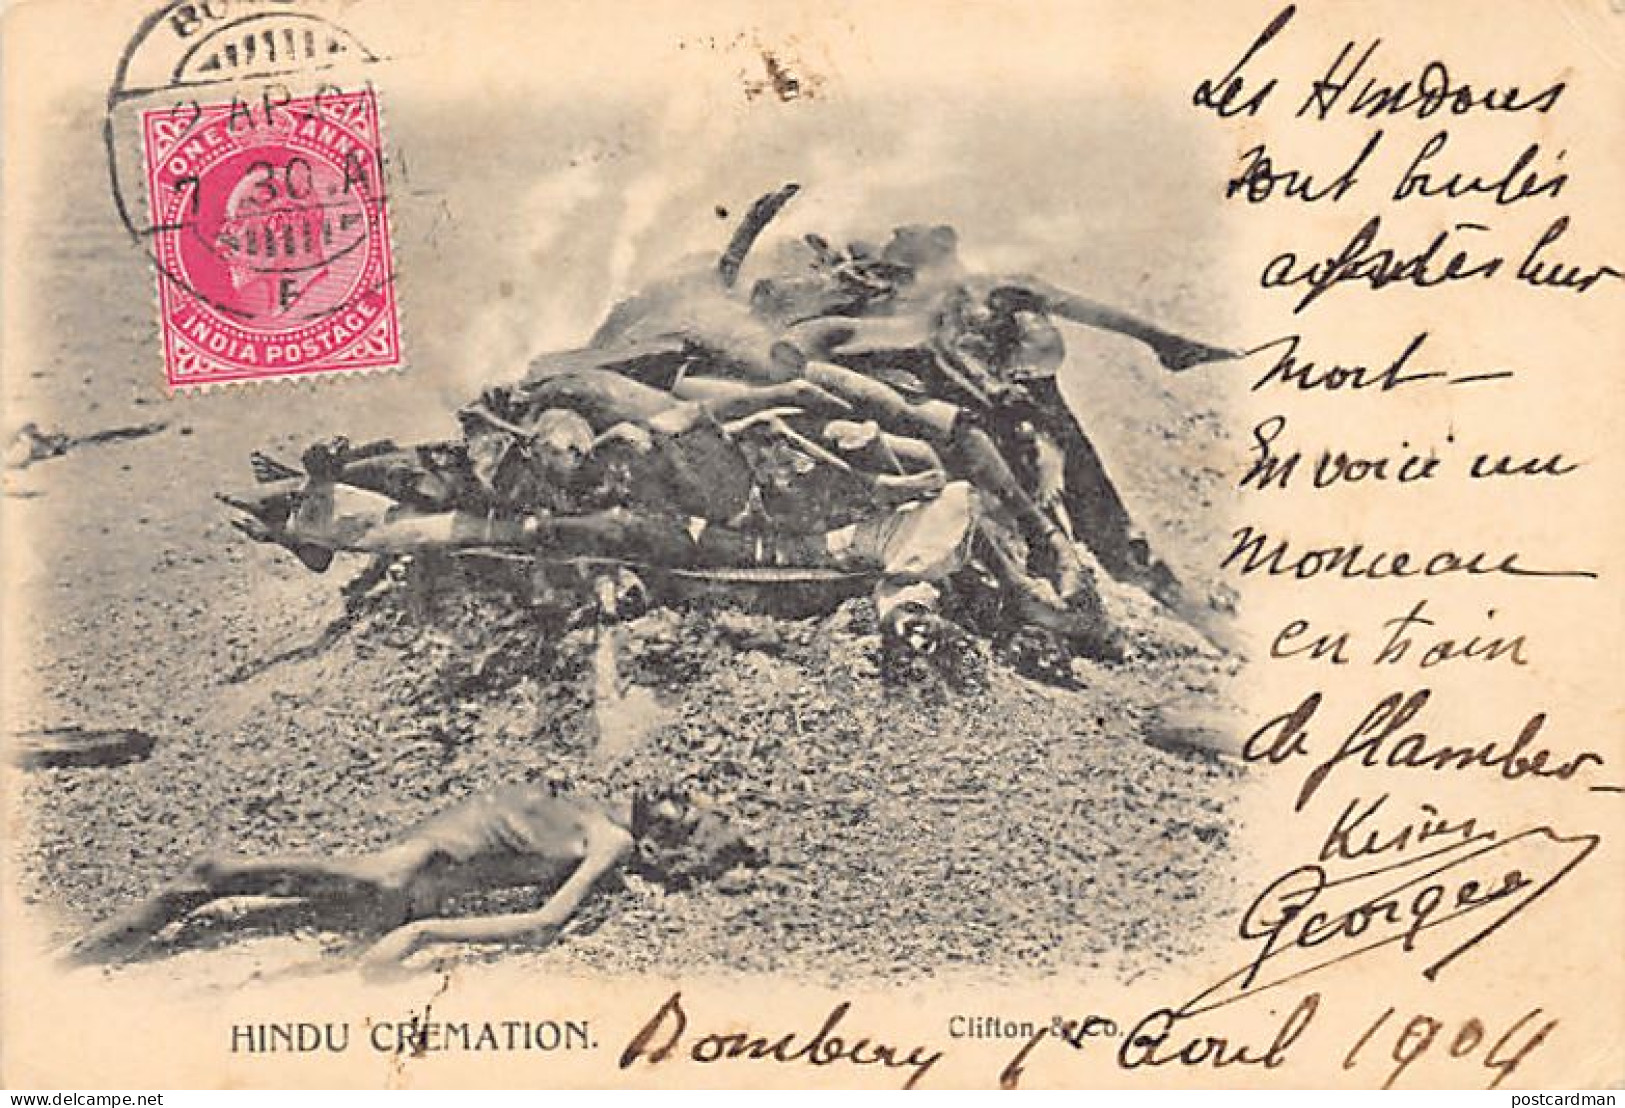 2 AP
7 30 AM
F
ONE ANNA
INDIA POSTAGE
Les Hindous
sont brulés
après leur
mort –
En voici un
monceau
en train
de flamber
Georges
HINDU CREMATION.
Clifton & Co.
Bombay Avril 1904
postcardman